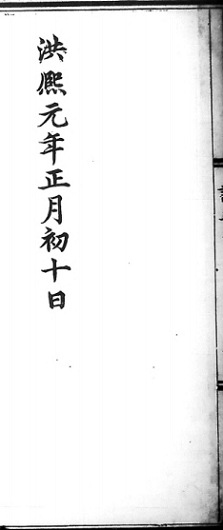 洪熙元年正月初十日